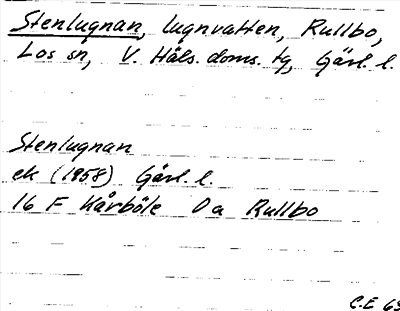 Stenlugnan, lugnvatten, Rullbo,
Los sn, V. Häls. doms. tg, Gävl. l.
Stenlugnan
ek (1958) Gävl. l.
16 F Kårböle 0 a Rullbo
C.E 63